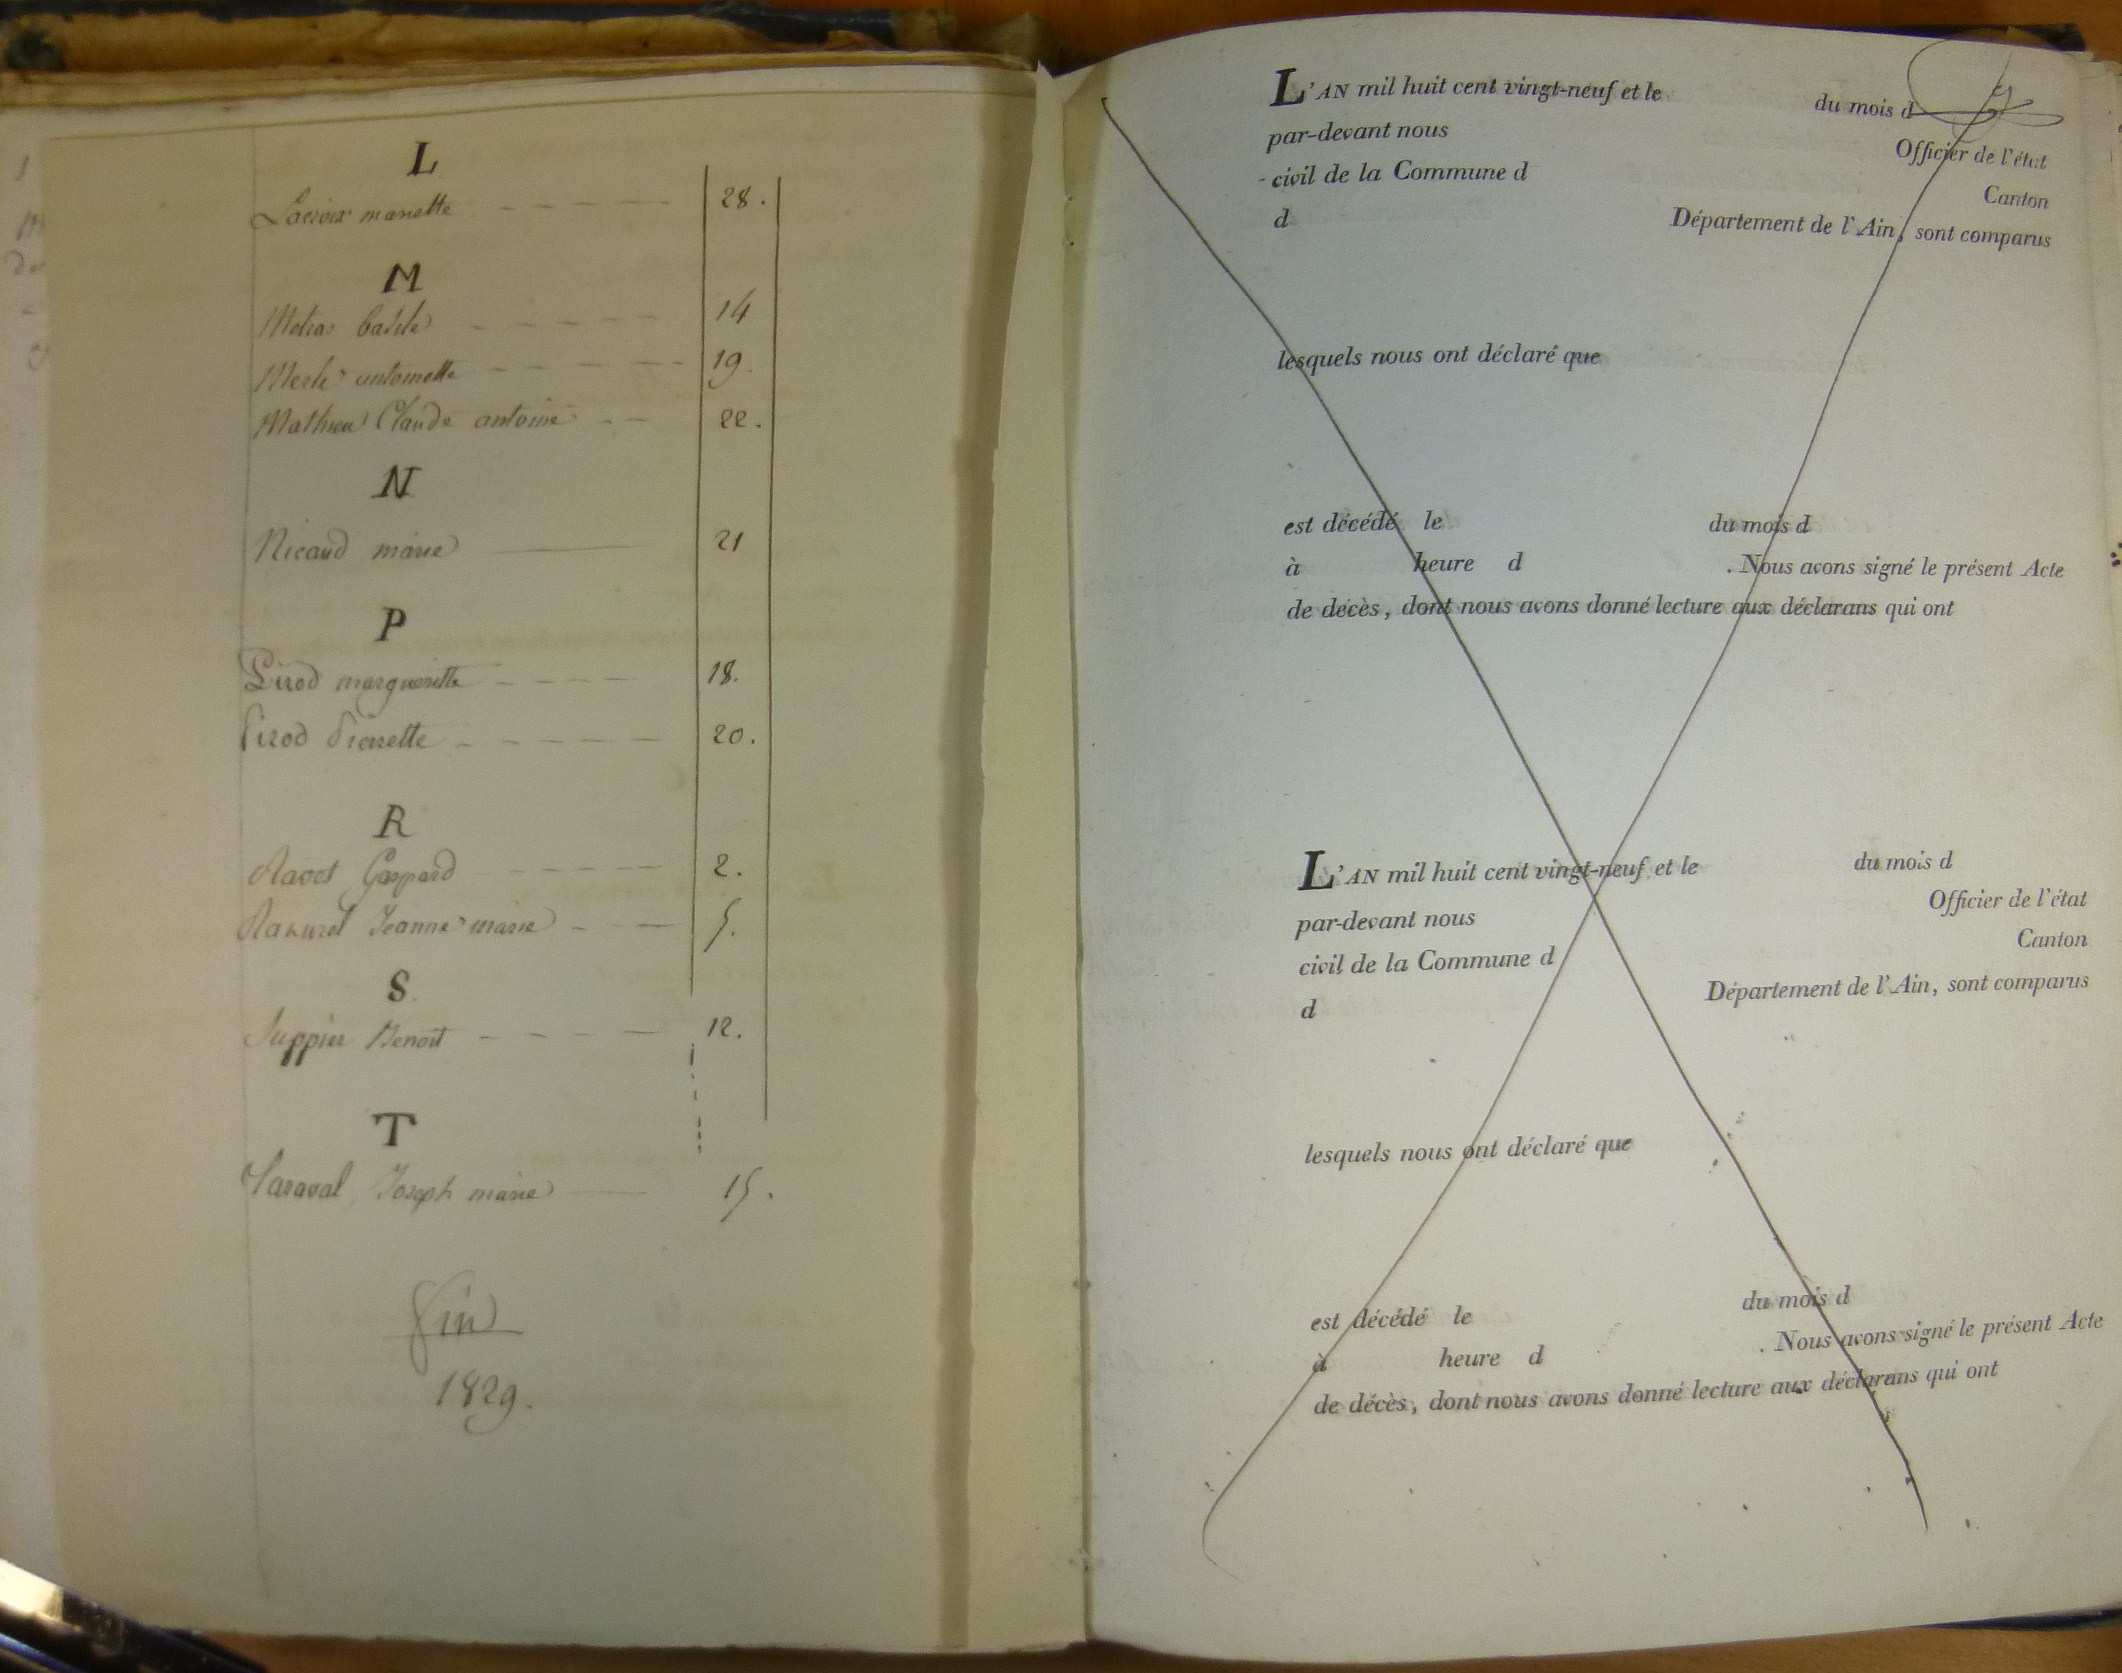 L
Lacroix manette 28.
M
basile 14
Merle antoinette 19.
Mathieu Claude antoine 22.
N
Nicaud marie 21
P
Pirod margueritte 18.
Pirod Pierrette 20.
R
Ravet Gaspard 2.
Jeanne marie 5.
S
Suppier Benoit 12.
T
Taraval Joseph marie 15.
Fin
1829.
L'AN mil huit cent vingt-neuf et le du mois d
par-devant nous Officier de l'état
civil de la Commune d Canton
d Département de l'Ain, sont comparus
lesquels nous ont déclaré que
est décédé le du mois d
à heure d . Nous avons signé le présent Acte
de décès, dont nous avons donné lecture aux déclarans qui ont
L'AN mil huit cent vingt-neuf et le du mois d
par-devant nous Officier de l'état
civil de la Commune d Canton
d Département de l'Ain, sont comparus
lesquels nous ont déclaré que
est décédé le du mois d
à heure d . Nous avons signé le présent Acte
de décès, dont nous avons donné lecture aux déclarans qui ont